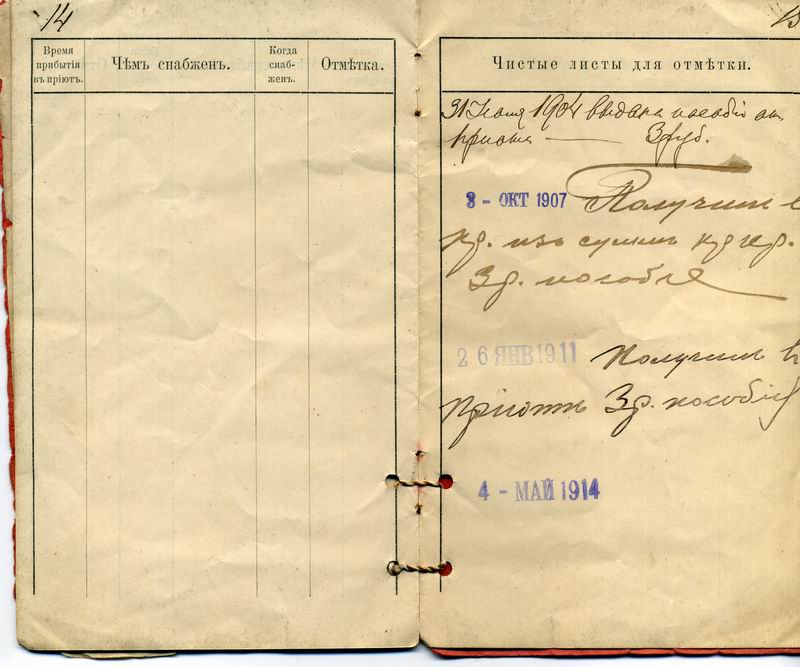 14
Время прибытія въ пріютъ.
Чѣмъ снабженъ.
Когда снаб-
женъ.
Отмѣтка.
15
Чистые листы для отмѣтки.
31 1904 выдано пособіе
пріюта — 3 руб.
3 - ОКТ 1907 Получилъ
изъ суммъ
3 р. пособіе
26 ЯНВ 1911 Получилъ въ
пріютѣ 3 р. пособія
4 - МАЙ 1914